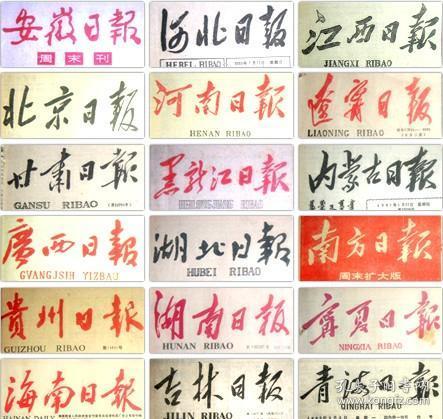 安徽日報
周末刊
河北日報
HEBEI RIBAO
江西日報
JIANGXI RIBAO
北京日報
河南日報
HENAN RIBAO
遼寧日報
LIAONING RIBAO
甘肅日報
GANSU RIBAO
黑龍江日報
HEILONGJIANG RIBAO
内蒙古日報
廣西日報
GVANGJSIH YIZBAU
湖北日報
HUBEI RIBAO
南方日報
周末扩大版
貴州日報
GUIZHOU RIBAO
湖南日報
HUNAN RIBAO
寧夏日報
NINGXIA RIBAO
海南日報
HAINAN DAILY
吉林日報
JILIN RIBAO
青海日報
QINGHAI RIBAO